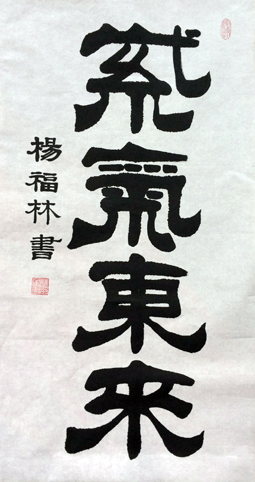 紫氣東來
楊福林書